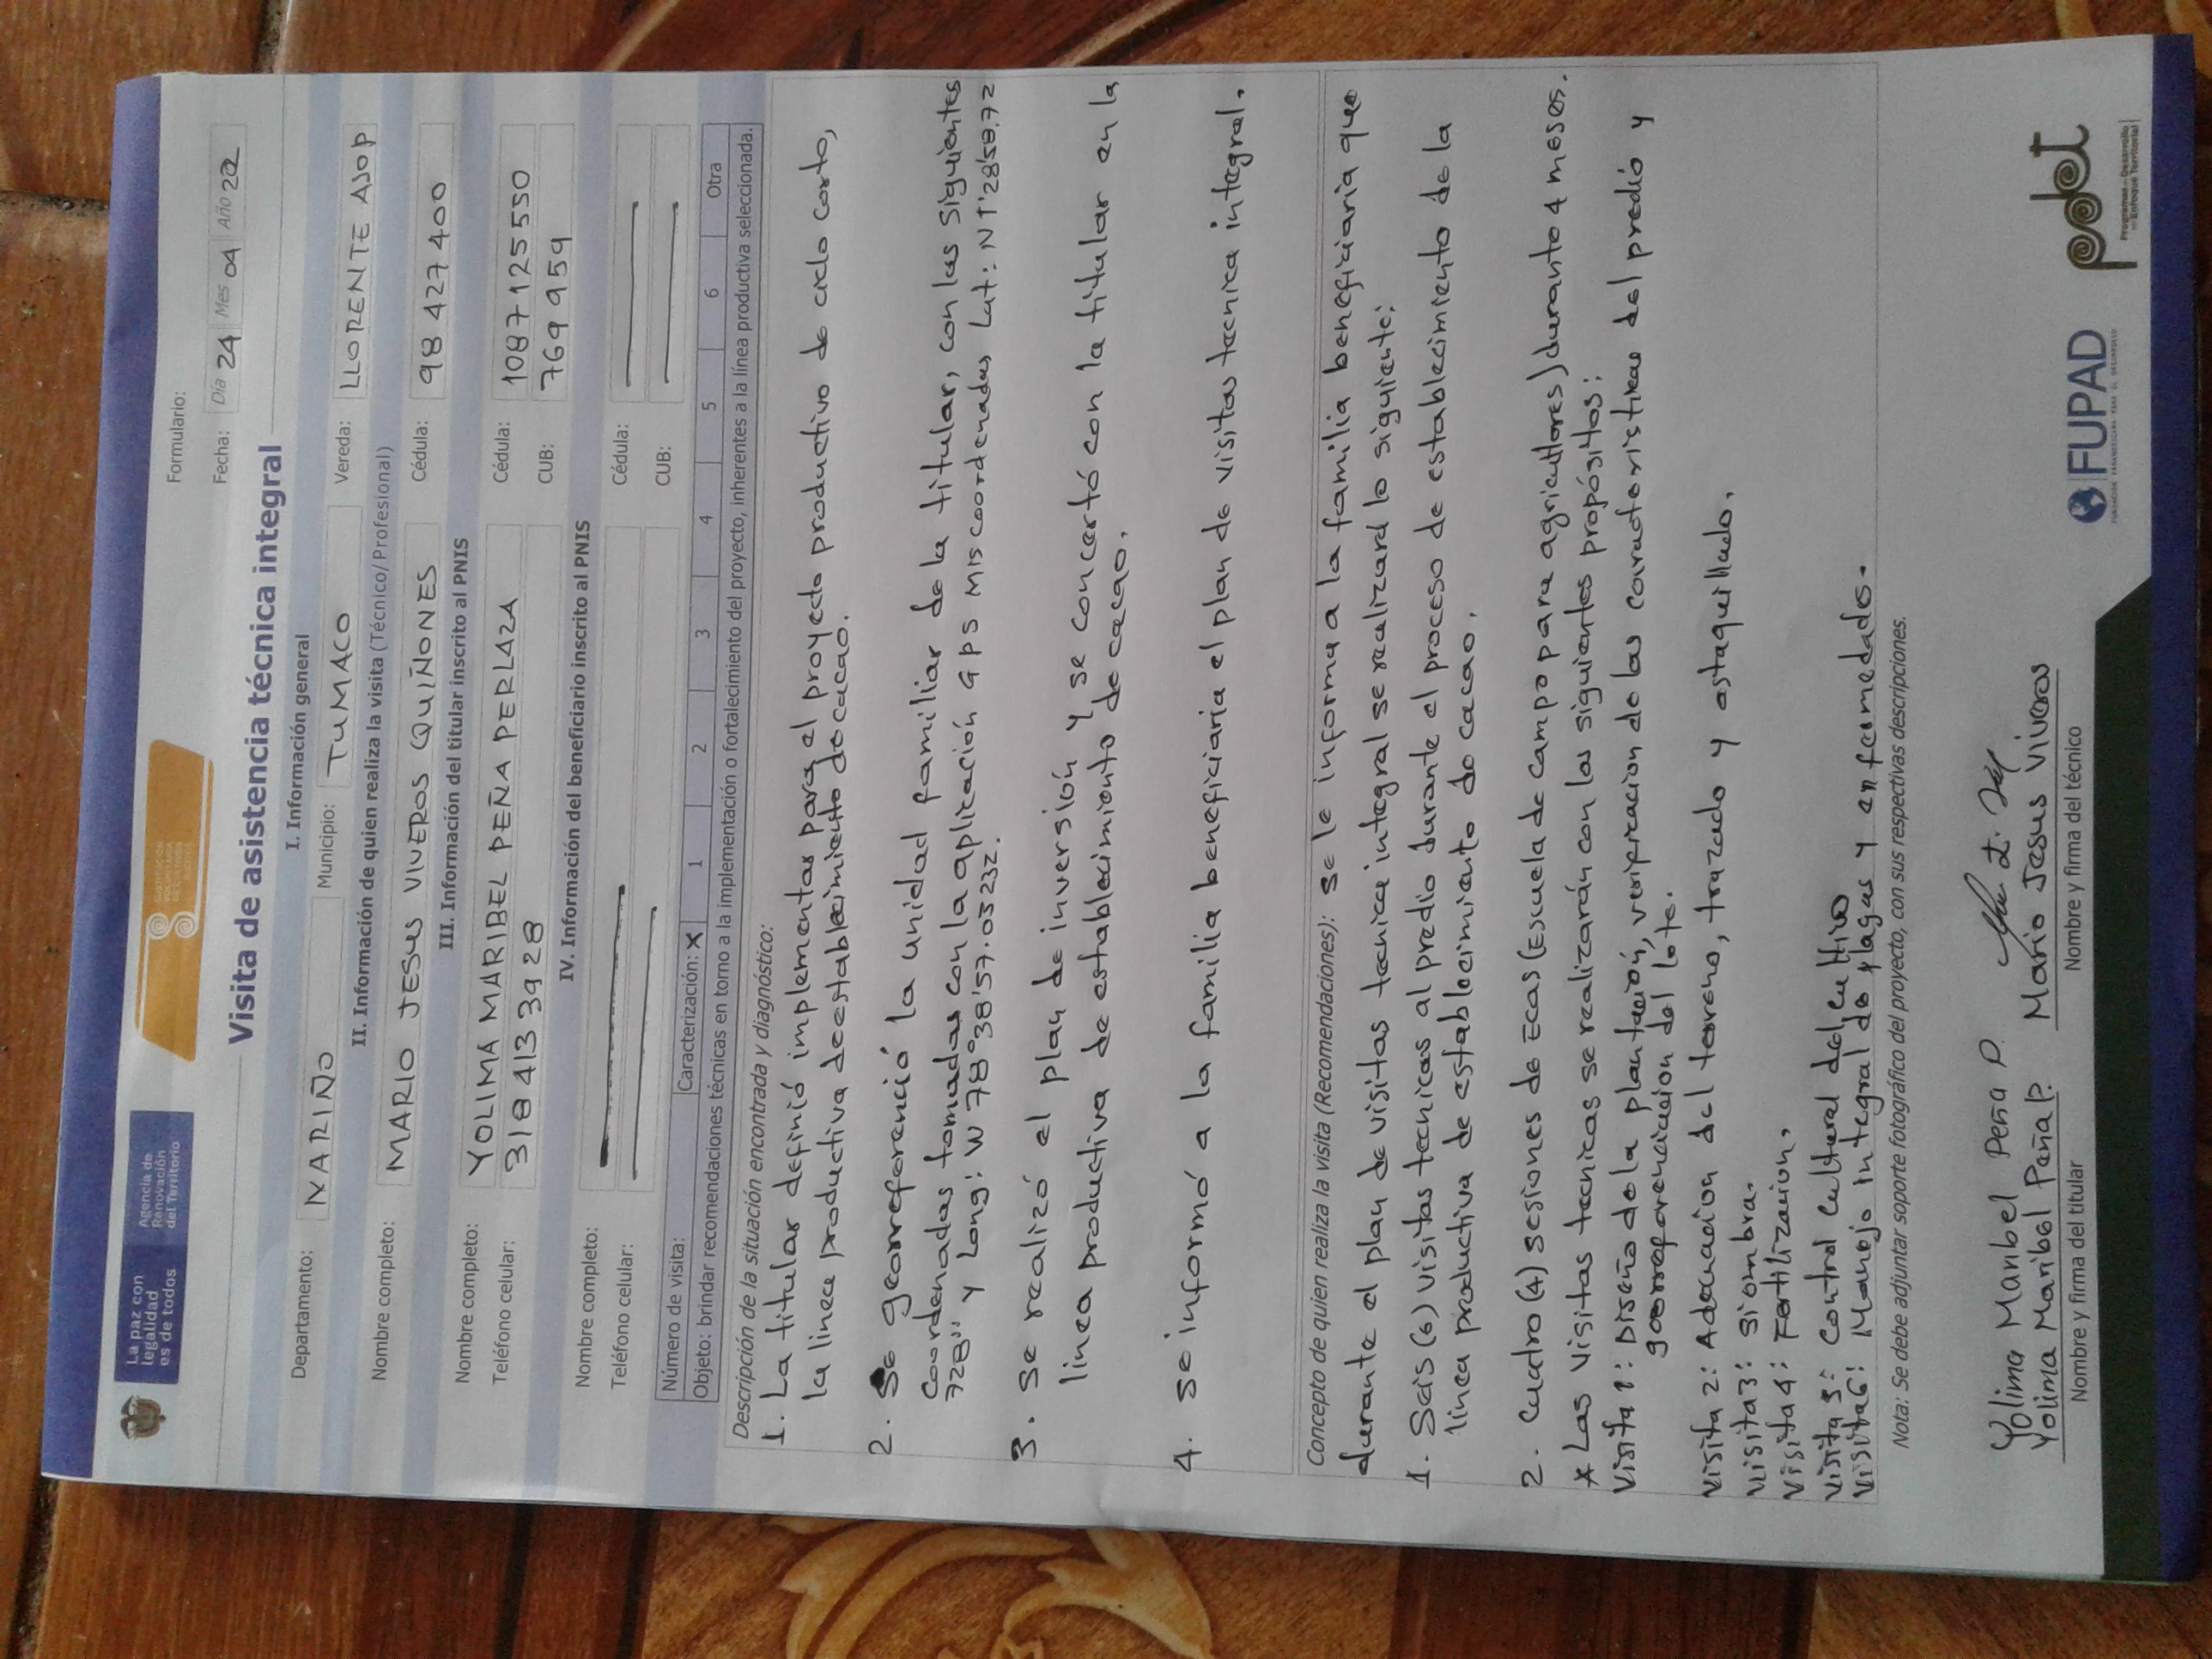 La paz con
legalidad
es de todos
Agencia de
Renovación
del Territorio
SUSTITUCIÓN
VOLUNTARIA
DE CULTIVOS
ILÍCITOS
Formulario:
Fecha: Día 24 Mes 04 Año 22
Visita de asistencia técnica integral
I. Información general
Departamento: NARIÑO Municipio: TUMACO Vereda: LLORENTE ASOP
II. Información de quien realiza la visita (Técnico/Profesional)
Nombre completo: MARIO JESUS VIVEROS QUIÑONES Cédula: 98 427 400
III. Información del titular inscrito al PNIS
Nombre completo: YOLIMA MARIBEL PEÑA PERLAZA Cédula: 1087125550
Teléfono celular: 318 413 3928 CUB: 769959
IV. Información del beneficiario inscrito al PNIS
Nombre completo: Cédula:
Teléfono celular: CUB:
Número de visita: Caracterización: X 1 2 3 4 5 6 Otra
Objeto: brindar recomendaciones técnicas en torno a la implementación o fortalecimiento del proyecto, inherentes a la línea productiva seleccionada.
Descripción de la situación encontrada y diagnóstico:
1. La titular definió implementar para el proyecto productivo de ciclo corto,
la linea productiva de establecimiento de cacao.
2. Se georreferenció la unidad familiar de la titular, con las siguientes
Coordenadas tomadas con la aplicación GPS Mis coordenadas Lat: N
728" y Long: W 78°38'57.03232.
3. se realizó el plan de inversión y se concertó con la titular en la
linea productiva de establecimiento de cacao.
4. se informó a la familia beneficiaria el plan de visitas tecnica integral.
Concepto de quien realiza la visita (Recomendaciones): se le informa a la familia beneficiaria que
durante el plan de visitas tecnica integral se realizará lo siguiente:
1. Seis (6) visitas tecnicas al predio durante el proceso de establecimiento de la
linea productiva de establecimiento de cacao.
2. Cuatro (4) sesiones de Ecas (Escuela de campo para agricultores) durante 4 meses.
* Las visitas tecnicas se realizarán con los siguientes propósitos:
Visita 1: Diseño de la plantación, verificacion de las caracteristicas del predio y
georreferenciacion del lote.
visita 2: Adecuacion del terreno, trazado y estaquillado.
visita 3: siembra.
visita 4: Fertilizacion.
visita 5: Control cultural del cultivo
visita 6: Manejo integral de plagas y enfermedades.
Nota: Se debe adjuntar soporte fotográfico del proyecto, con sus respectivas descripciones.
Yolima Maribel Peña P.
Yolima Maribel Peña P. Mario Jesus Viveros
Nombre y firma del titular Nombre y firma del técnico
FUPAD
FUNDACIÓN PANAMERICANA PARA EL DESARROLLO
pdet
Programas de Desarrollo
con Enfoque Territorial